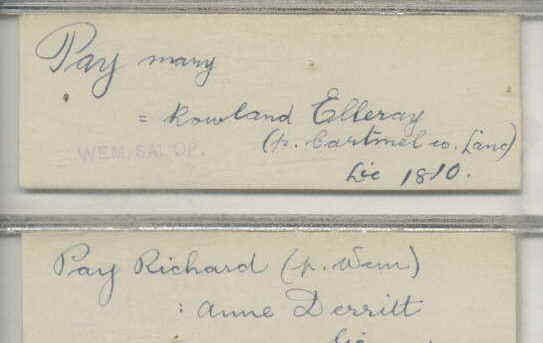 Pay Mary
= Rowland Elleray
(p. Cartmel co. Lanc)
WEM, SALOP.
Lic 1810.
Pay Richard (p. Wem)
: Anne Derritt
Lic